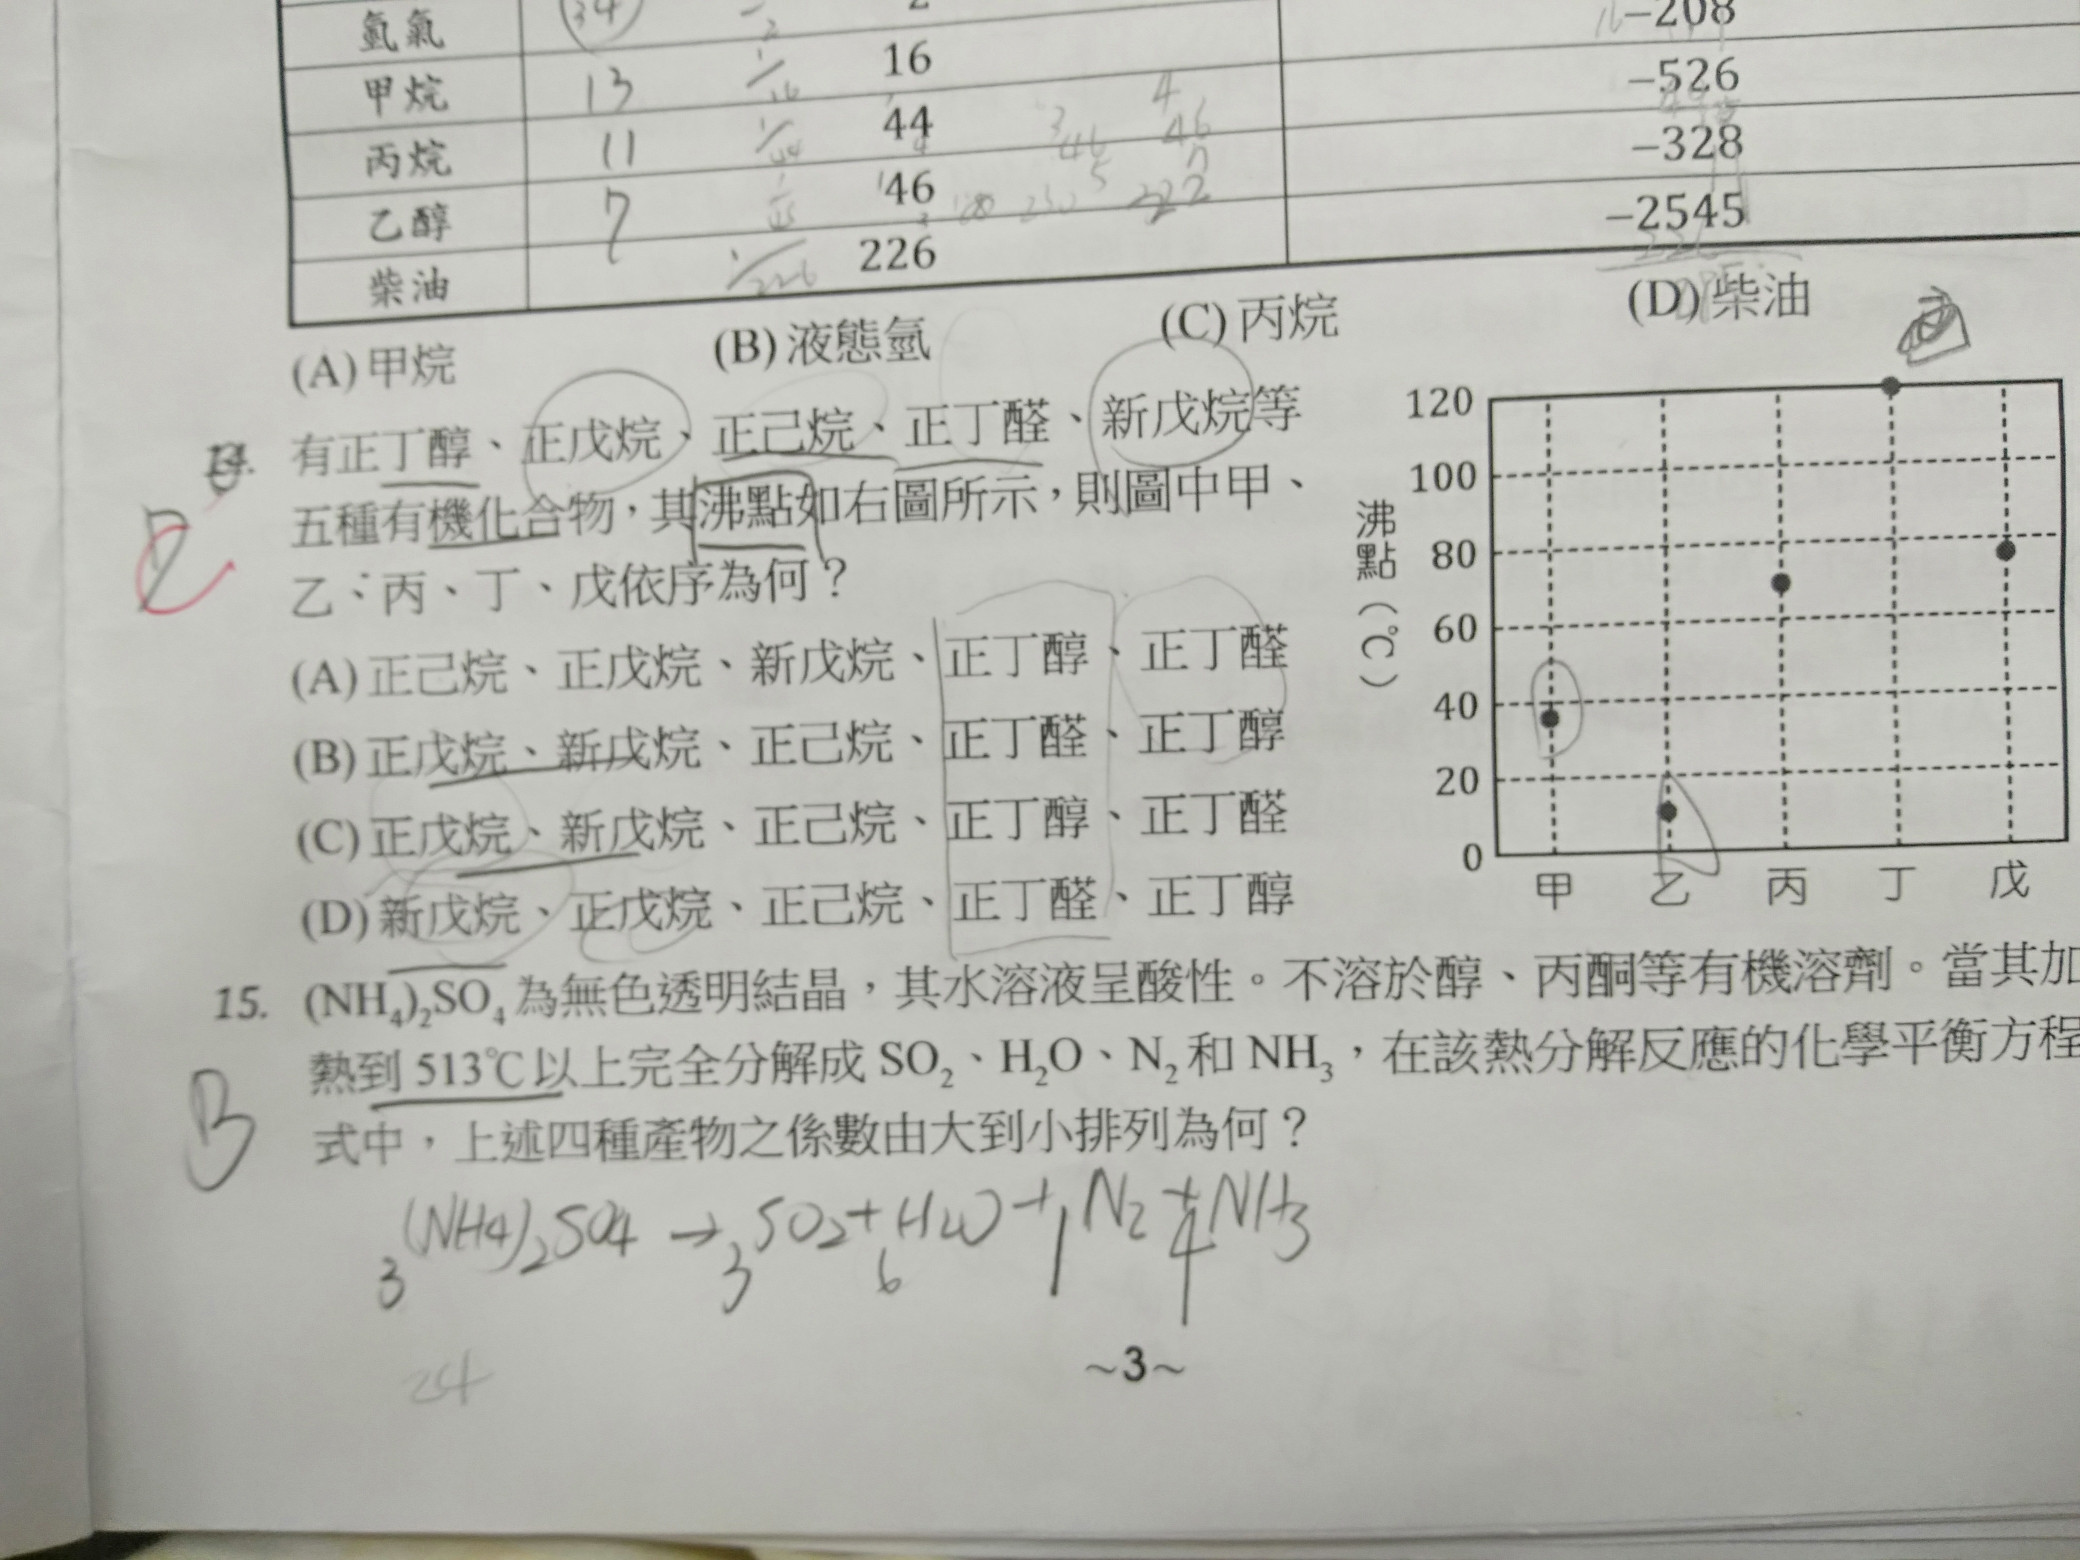 氫氣 34 2 2 -208
甲烷 13 1/16 16 -526
丙烷 11 1/44 44 -328
乙醇 7 46 -2545
柴油 1/226 226
(A) 甲烷 (B) 液態氫 (C) 丙烷 (D) 柴油
14. 有正丁醇、正戊烷、正己烷、正丁醛、新戊烷等
五種有機化合物，其沸點如右圖所示，則圖中甲、
乙、丙、丁、戊依序為何？
(A) 正己烷、正戊烷、新戊烷、正丁醇、正丁醛
(B) 正戊烷、新戊烷、正己烷、正丁醛、正丁醇
(C) 正戊烷、新戊烷、正己烷、正丁醇、正丁醛
(D) 新戊烷、正戊烷、正己烷、正丁醛、正丁醇
沸點（℃）
120
100
80
60
40
20
0
甲 乙 丙 丁 戊
C
15. (NH₄)₂SO₄ 為無色透明結晶，其水溶液呈酸性。不溶於醇、丙酮等有機溶劑。當其加
熱到 513℃以上完全分解成 SO₂、H₂O、N₂ 和 NH₃，在該熱分解反應的化學平衡方程
式中，上述四種產物之係數由大到小排列為何？
B
3(NH4)2SO4 → 3SO2 + 6H2O + 1N2 + 4NH3
24
~3~